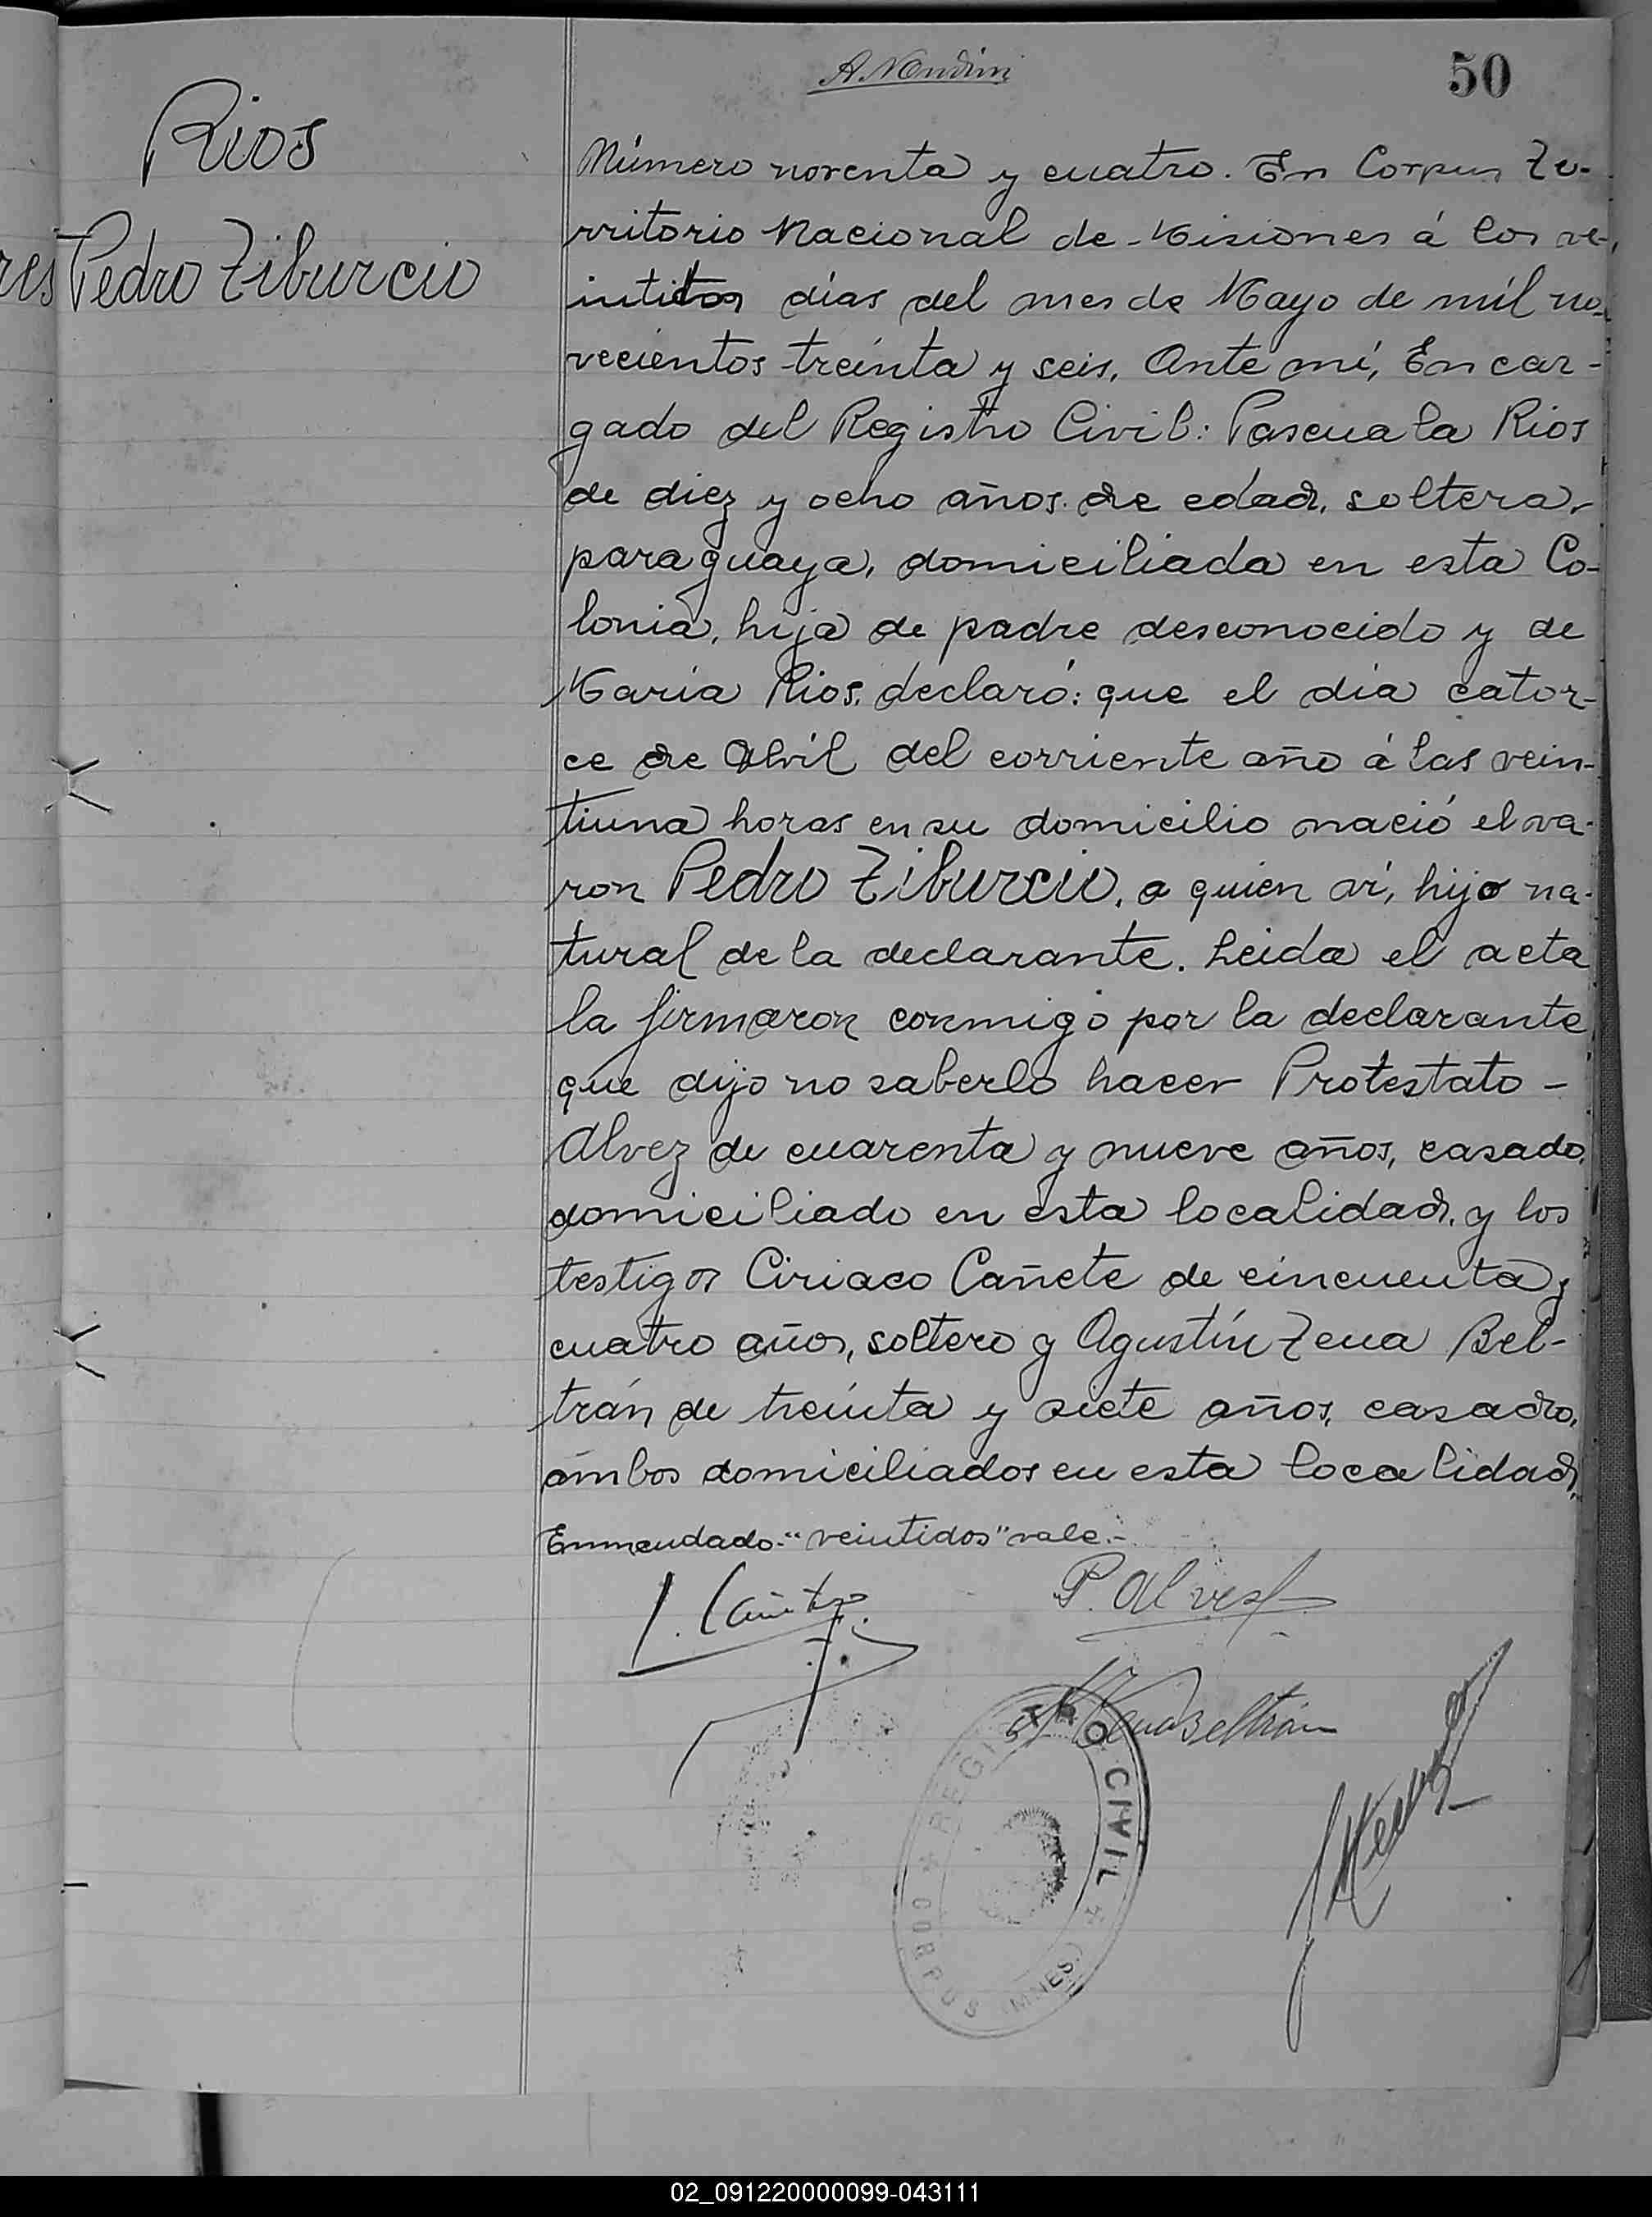 50
Rios
Pedro Tiburcio
Número noventa y cuatro. En Corpus Te-
rritorio Nacional de Misiones á los ve-
intidos días del mes de Mayo de míl no-
vecientos treinta y seis, Ante mí, Encar-
gado del Registro Civil: Pascuala Rios
de diez y ocho años de edad, soltera,
paraguaya, domiciliada en esta Co-
lonia, hija de padre desconocido y de
María Rios, declaró: que el día cator-
ce de Abril del corriente año á las vein-
tiuna horas en su domicilio nació el va-
ron Pedro Tiburcio, a quien ví, hijo na-
tural de la declarante. Leida el acta
la firmaron conmigo por la declarante
que dijo no saberlo hacer Protestato -
Alvez de cuarenta y nueve años, casado,
domiciliado en esta localidad, y los
testigos Ciriaco Cañete de cincuenta y
cuatro años, soltero y Agustín Zena Bel-
trán de treinta y siete años, casado,
ámbos domiciliados en esta localidad,
Enmendado-"veintidos" vale.-
P. Alvez
Beltrán
REGISTRO CIVIL
CORPUS (MNES)
02_091220000099-043111